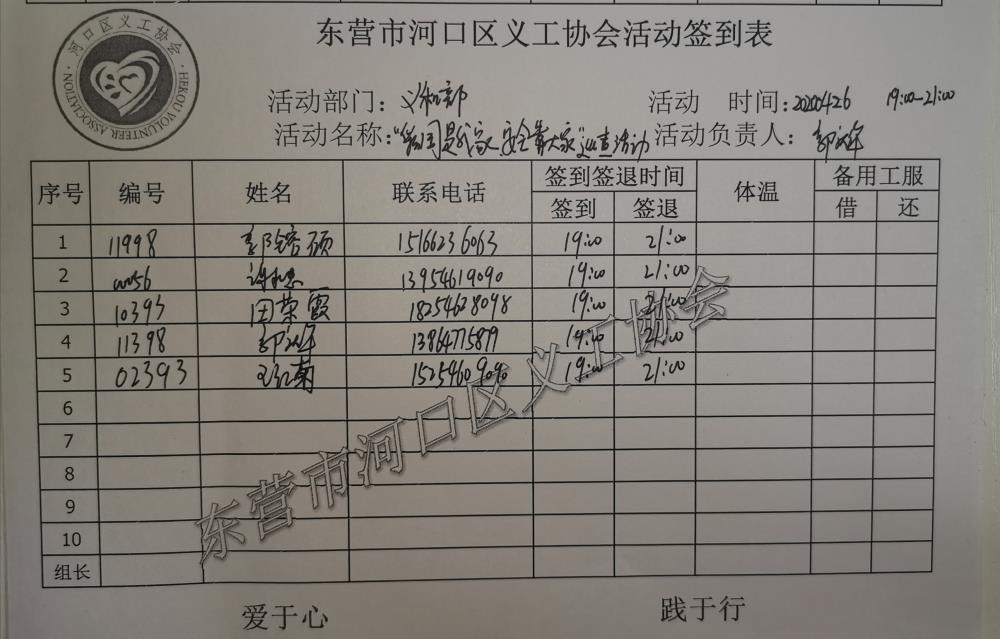 东营市河口区义工协会活动签到表
河口区义工协会
HEKOU VOLUNTEER ASSOCIATION
活动部门: 义和部 活动 时间: 20200426 19:00-21:00
活动名称: 是我家,安全靠大家"巡查活动 活动负责人: 郭
序号 编号 姓名 联系电话 签到签退时间 体温 备用工服
签到 签退 借 还
1 11998 郭 硕 15166236063 19:00 21:00
2 13954619090 19:00 21:00
3 10393 田荣霞 18254628098 19:00 21:00
4 11398 郭 13864775879 19:00 21:00
5 02393 王红菊 15254609090 19:00 21:00
6
7
8
9
10
组长
东营市河口区义工协会
爱于心 践于行